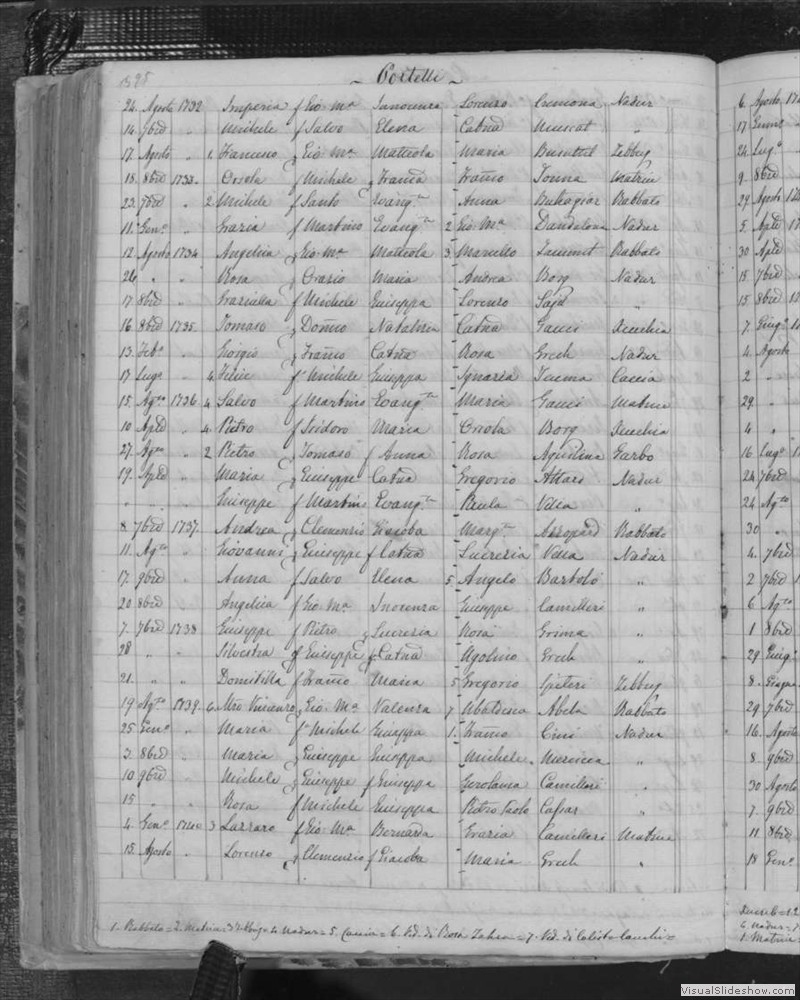 1595
~ Portelli ~
24. Agosto 1732 Imperia f Gio: Mª Innocenza Lorenzo Cremona Nadur
14. 7brê " Michele f Salvo Elena Catnâ Muscat "
17. Agosto " 1. Francesco f Gio: Mª Matteola Maria Busuttil Zebbug
18. 8brê 1733. Orsola f Michele f Francâ Franco Matrice
23. 7brê " 2 Michele f Santo Evangta Anna Buhagiar Rabbato
11. Genº " Grazia f Martino Evangta 2 Gio: Mª Dandalona Nadur
12. Agosto 1734 Angelica f Gio: Mª Matteola 3 Marcello Zammit Rabbato
26 " " Rosa f Orazio Maria Andrea Borg Nadur
17. 8brê " Graziulla f Michele Giuseppa Lorenzo "
16. 8brê 1735. Tomaso f Domco Natalizia Catnâ Gauci Xeuchia
13. Febº " Giorgio f Franco Catnâ Rosa Grech Nadur
17 Lugº " 4. Felice f Michele Giuseppa Ignazia Caccia
15. Agto 1736 4 Salvo f Martino Evangta Maria Gauci Matrice
10 Aplê " 4. Pietro f Isidoro Maria Orsola Borg Xeuchia
27. Agto " 2 Pietro f Tomaso f Anna Rosa Agiulina Garbo
19. Aplê " Maria f Giuseppe Catnâ Gregorio Attard Nadur
" " " Giuseppe f Martino Evangta Paula Vella "
8. 7brê 1737. Andrea f Clemenzio Giacoba Margta Azzopard Rabbato
11. Agto " Giovanni f Giuseppe f Catnâ Lucrezia Vella Nadur
17. 9brê " Anna f Salvo Elena 5 Angelo Bartolo "
20. 8brê " Angelica f Gio: Mª Inocenza Giuseppe Camilleri "
7. 7brê 1738 Giuseppe f Pietro f Lucrezia Rosa Grima "
28 " " Silvestra f Giuseppe f Catnâ Ugolino Grech "
21. " " Domitilla f Franco Maria 5 Gregorio Spiteri Zebbug
19 Agto 1739. 6. Mro Vincenzo f Gio: Mª Valenza 7 Ubaldesca Abela Rabbato
25 Genº " Maria f Michele Giuseppa 1. Franco Cini Nadur
3. 8brê " Maria f Giuseppe Giuseppa Michele Mercieca "
10 9brê " Michele f Giuseppe f Giuseppa Gerolama Camilleri "
15 " " Rosa f Michele Giuseppa Pietro Paolo Cassar "
4. Genº 1740 3 Lazzaro f Gio: Mª Bernarda Grazia Camilleri Matrice
15. Agosto " Lorenzo f Clemenzio f Giacoba Maria Grech "
1. Rabbato = 2. Matrice = 3. Zebbug = 4. Nadur = 5. Caccia = 6. Vid. di Rosa = 7. Vid. di Calisto =
6. Agosto
17 Gennº
24 Lugº
9. 8brê
27 Agosto
5. Aplê
30 Aplê
15 7brê
15 8brê
7. Giugº
4. Agosto
2 "
29. "
4. "
16 Lugº
24 7brê
24 Agto
30 "
4. 7brê
2 7brê
6 Agto
1 8brê
29 Giugº
8.
29 7brê
16. Agosto
8. 9brê
30 Agosto
7. 9brê
11 8brê
18 Genº
6. Nadur = 7
1. Matrice =
VisualSlideshow.com